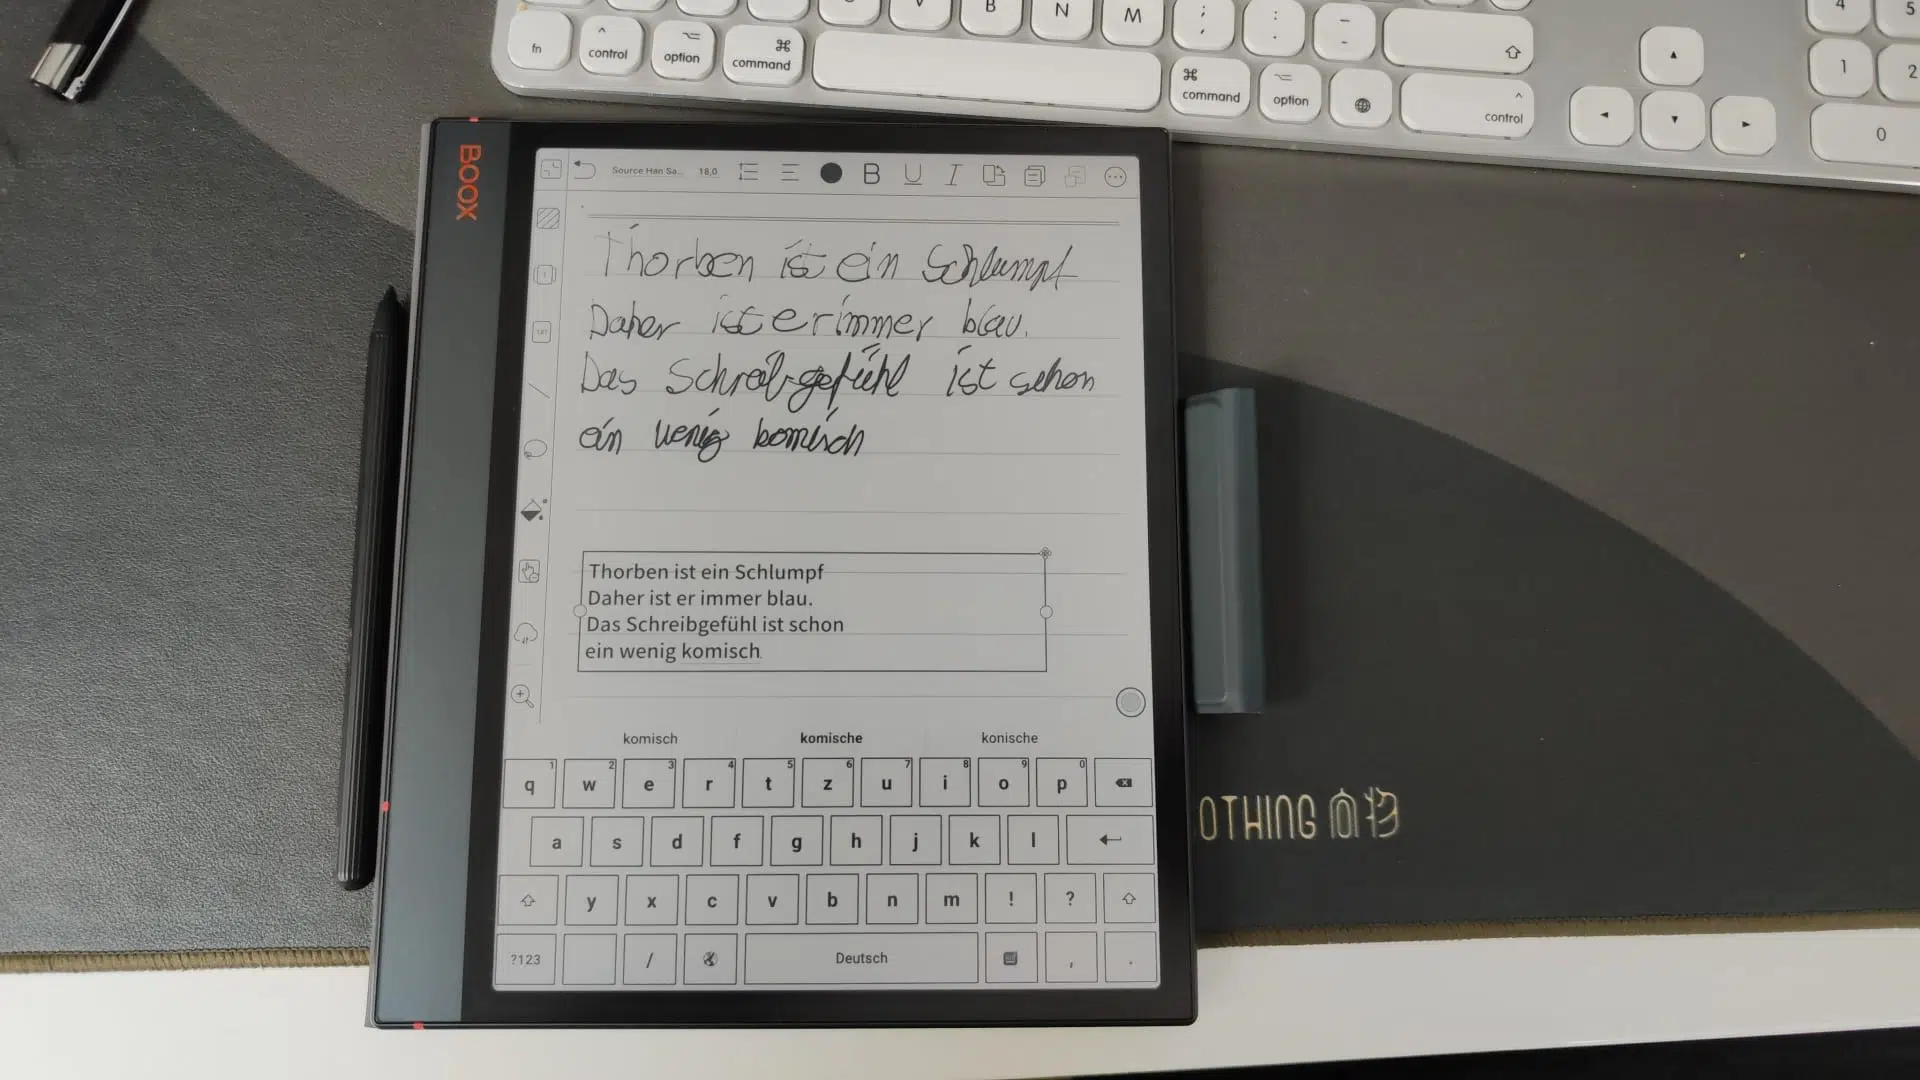 B N M ; : –
fn ^ control ⌥ option ⌘ command ⌘ command ⌥ option ^ control
4 5
1 2
0
BOOX
Source Han Sa... 18,0 B U I
Thorben ist ein Schlumpf
Daher ist er immer blau.
Das Schreibgefühl ist schon
ein wenig komisch
Thorben ist ein Schlumpf
Daher ist er immer blau.
Das Schreibgefühl ist schon
ein wenig komisch
komisch komische konische
q 1 w 2 e 3 r 4 t 5 z 6 u 7 i 8 o 9 p 0
a s d f g h j k l
y x c v b n m ! ?
?123 / Deutsch , .
OTHING 向物